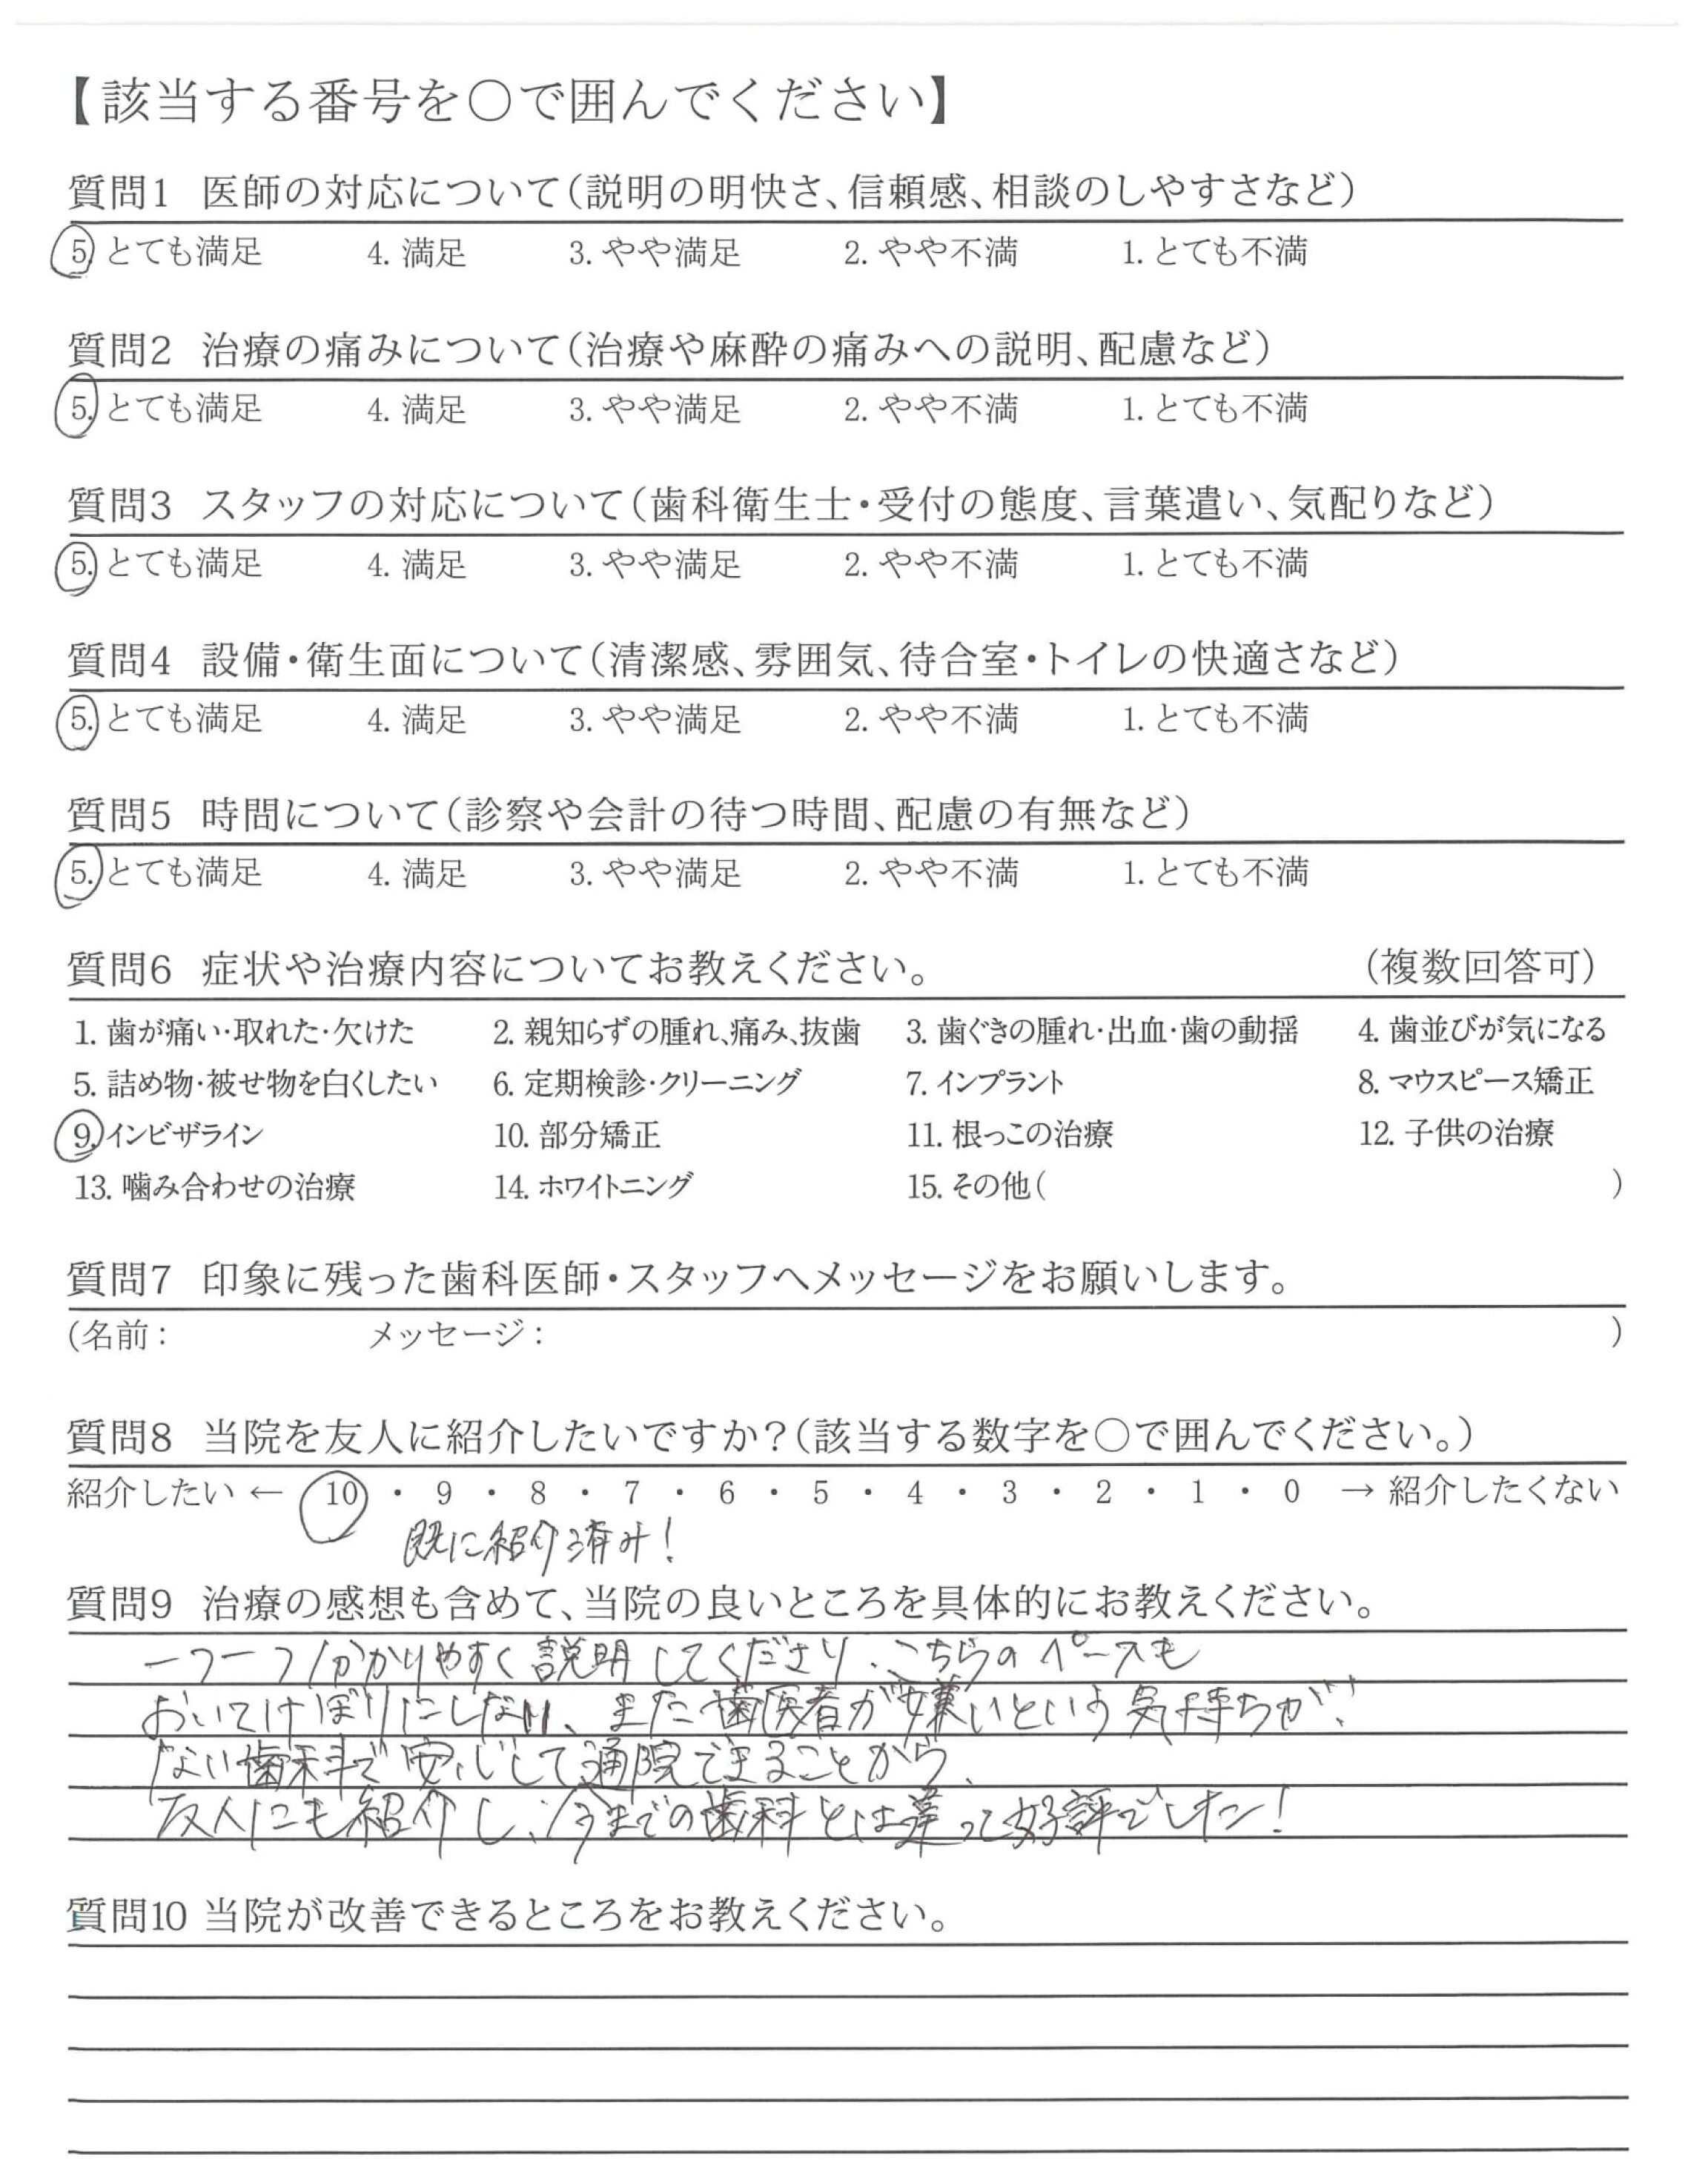 【該当する番号を○で囲んでください】
質問1 医師の対応について(説明の明快さ、信頼感、相談のしやすさなど)
5. とても満足 4. 満足 3. やや満足 2. やや不満 1. とても不満
質問2 治療の痛みについて(治療や麻酔の痛みへの説明、配慮など)
5. とても満足 4. 満足 3. やや満足 2. やや不満 1. とても不満
質問3 スタッフの対応について(歯科衛生士・受付の態度、言葉遣い、気配りなど)
5. とても満足 4. 満足 3. やや満足 2. やや不満 1. とても不満
質問4 設備・衛生面について(清潔感、雰囲気、待合室・トイレの快適さなど)
5. とても満足 4. 満足 3. やや満足 2. やや不満 1. とても不満
質問5 時間について(診察や会計の待つ時間、配慮の有無など)
5. とても満足 4. 満足 3. やや満足 2. やや不満 1. とても不満
質問6 症状や治療内容についてお教えください。 (複数回答可)
1. 歯が痛い・取れた・欠けた 2. 親知らずの腫れ、痛み、抜歯 3. 歯ぐきの腫れ・出血・歯の動揺 4. 歯並びが気になる
5. 詰め物・被せ物を白くしたい 6. 定期検診・クリーニング 7. インプラント 8. マウスピース矯正
9. インビザライン 10. 部分矯正 11. 根っこの治療 12. 子供の治療
13. 噛み合わせの治療 14. ホワイトニング 15. その他( )
質問7 印象に残った歯科医師・スタッフへメッセージをお願いします。
(名前: メッセージ: )
質問8 当院を友人に紹介したいですか?(該当する数字を○で囲んでください。)
紹介したい ← 10 ・ 9 ・ 8 ・ 7 ・ 6 ・ 5 ・ 4 ・ 3 ・ 2 ・ 1 ・ 0 → 紹介したくない
既に紹介済み!
質問9 治療の感想も含めて、当院の良いところを具体的にお教えください。
一つ一つ分かりやすく説明してくださり、こちらのペースも
おいてけぼりにしない、また歯医者が嫌いという気持ちが、
ない歯科で安心して通院できることから、
友人にも紹介し、今までの歯科とは違って好評でした!
質問10 当院が改善できるところをお教えください。